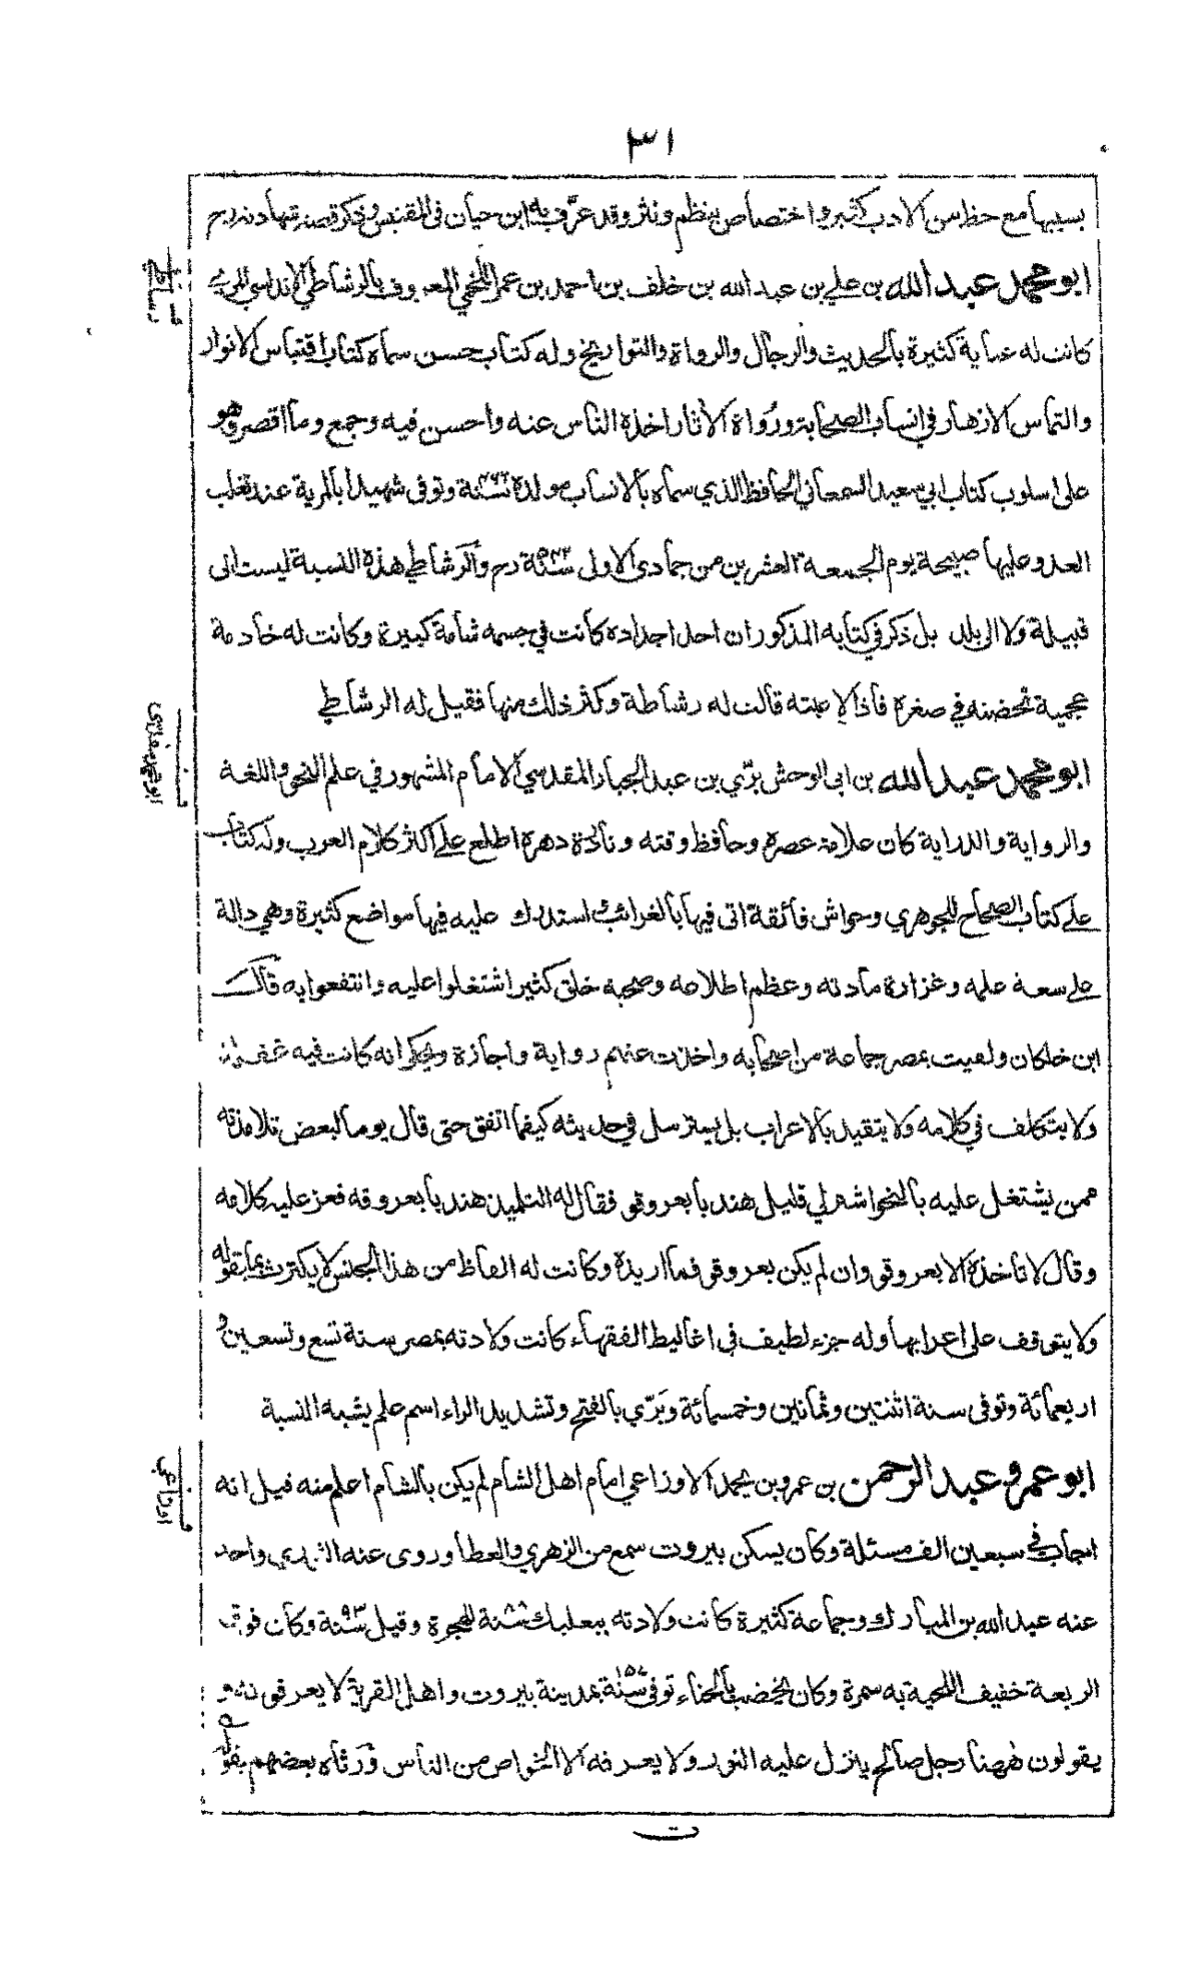 ٣١
بسببها مع حظ من الادب كثير واختصاص بنظم ونثر وقد عرّف به ابن حيان فى المقتبس وذكر قصة
ابو محمد عبد الله بن علي بن عبد الله بن خلف بن احمد بن عمر اللخمي المعروف بالرشاطي الاندلسي المريي
كانت له عناية كثيرة بالحديث والرجال والرواة والتواريخ وله كتاب حسن سماه كتاب اقتباس الانوار
والتماس الازهار في انساب الصحابة ورُواة الاثار اخذه الناس عنه واحسن فيه وجمع وما اقصر وهو
على اسلوب كتاب ابي سعيد السمعاني الحافظ الذي سماه بالانساب مولده سنة وتوفى شهيدا بالمرية عند تغلب
العدو عليها صبيحة يوم الجمعة العشرين من جمادى الاول سنة رح والرَشاطي هذه النسبة ليست الى
قبيلة ولا الى بلد بل ذكر في كتابه المذكور ان احد اجداده كانت في جسمه شامة كبيرة وكانت له خادمة
عجمية تحضنه في صغره فاذا لاعبته قالت له رشاطة وكثر ذلك منها فقيل له الرشاطي
ابو محمد عبد الله بن ابى الوحش برّي بن عبد الجبار المقدسي الامام المشهور في علم النحو واللغة
والرواية والدراية كان علامة عصره وحافظ وقته ونادرة دهره اطلع على اكثر كلام العرب وله كتاب
على كتاب الصحاح للجوهري وحواش فائقة اتى فيها بالغرائب استدرك عليه فيها مواضع كثيرة وهي دالة
على سعة علمه وغزارة مادته وعظم اطلاعه وصحبه خلق كثير اشتغلوا عليه وانتفعوا به قال
ابن خلكان ولقيت بمصر جماعة من اصحابه واخذت عنهم رواية واجازة ويحكى انه كانت فيه غفلة
ولا يتكلف في كلامه ولا يتقيد بالاعراب بل يسترسل في حديثه كيفما اتفق حتى قال يوما لبعض تلامذته
ممن يشتغل عليه بالنحو اشتر لي قليل هندبا بعروقو فقال له التلميذ هندبا بعروقه فعز عليه كلامه
وقال لا تاخذه الا بعروقو وان لم يكن بعروقو فما اريده وكانت له الفاظ من هذا الجنس لا يكترث بما يقوله
ولا يتوقف على اعرابها وله جزء لطيف في اغاليط الفقهاء كانت ولادته بمصر سنة تسع وتسعين و
اربعمائة وتوفى سنة اثنتين وثمانين وخمسمائة وبَرّي بالفتح وتشديد الراء اسم علم يشبه النسبة
ابو عمرو عبد الرحمن بن عمرو بن يحمد الاوزاعي امام اهل الشام لم يكن بالشام اعلم منه قيل انه
اجاب في سبعين الف مسئلة وكان يسكن بيروت سمع من الزهري والعطا وروى عنه الثوري واخذ
عنه عبد الله بن المبارك وجماعة كثيرة كانت ولادته ببعلبك سنة ٨٨ للهجرة وقيل سنة ٩٣ وكان فوق
الربعة خفيف اللحية به سمرة وكان يخضب بالحناء توفى سنة ١٥٧ بمدينة بيروت واهل القرية لا يعرفونه و
يقولون ههنا رجل صالح ينزل عليه النور ولا يعرفه الا الخواص من الناس ورَثاه بعضهم بقوله
رشاطي
اوزاعي